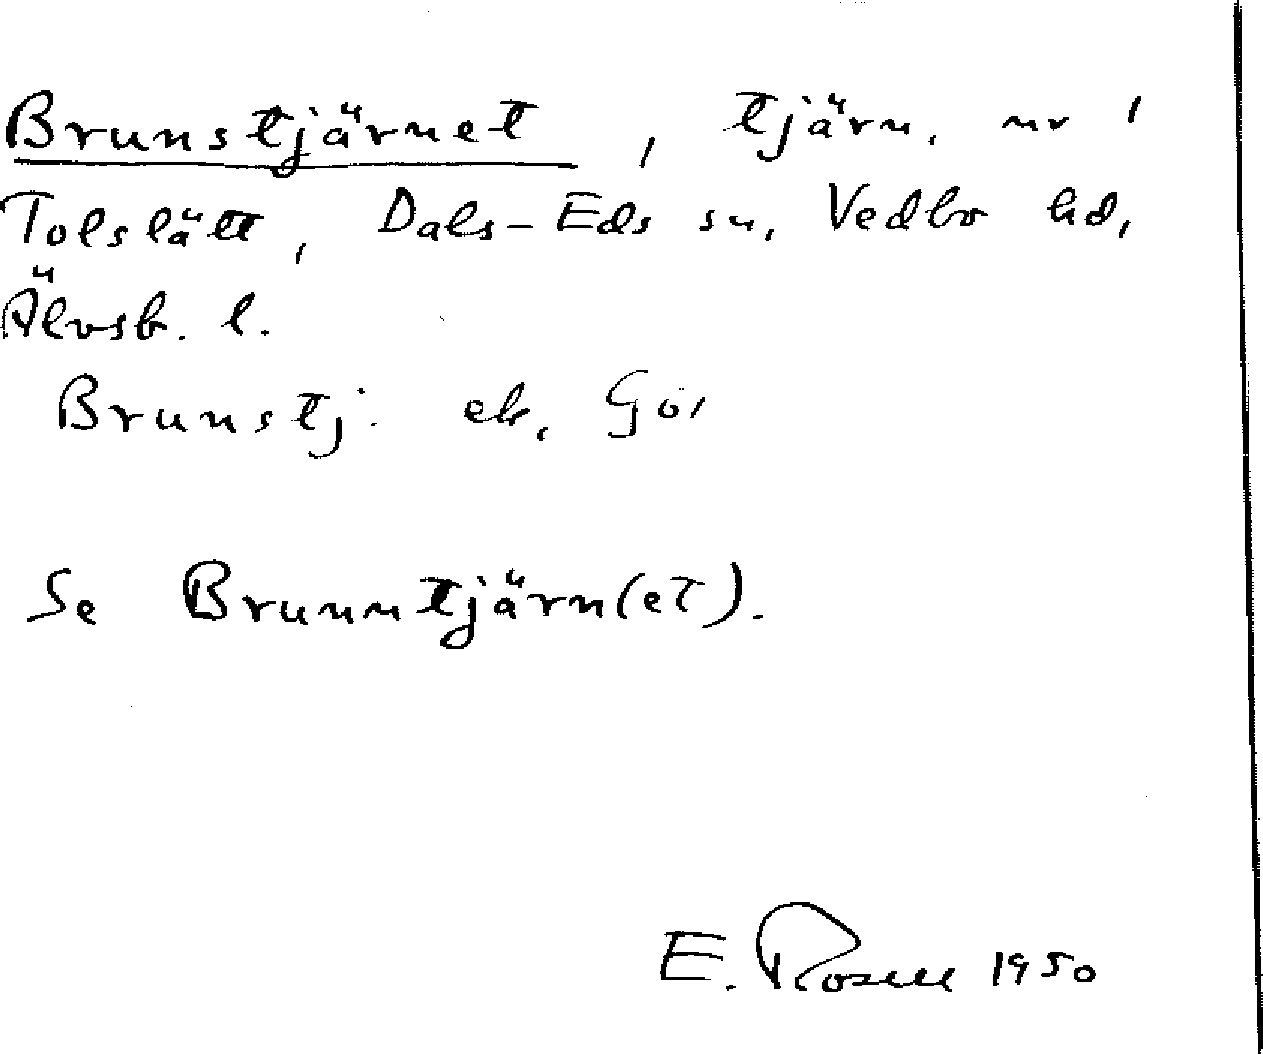 Brunstjärnet, tjärn, nr 1
Tolslätt, Dals-Eds sn, Vedbo hd,
Älvsb. l.
Brunstj. ek, Gö1
Se Brunntjärn(et).
E. Rosell 1950